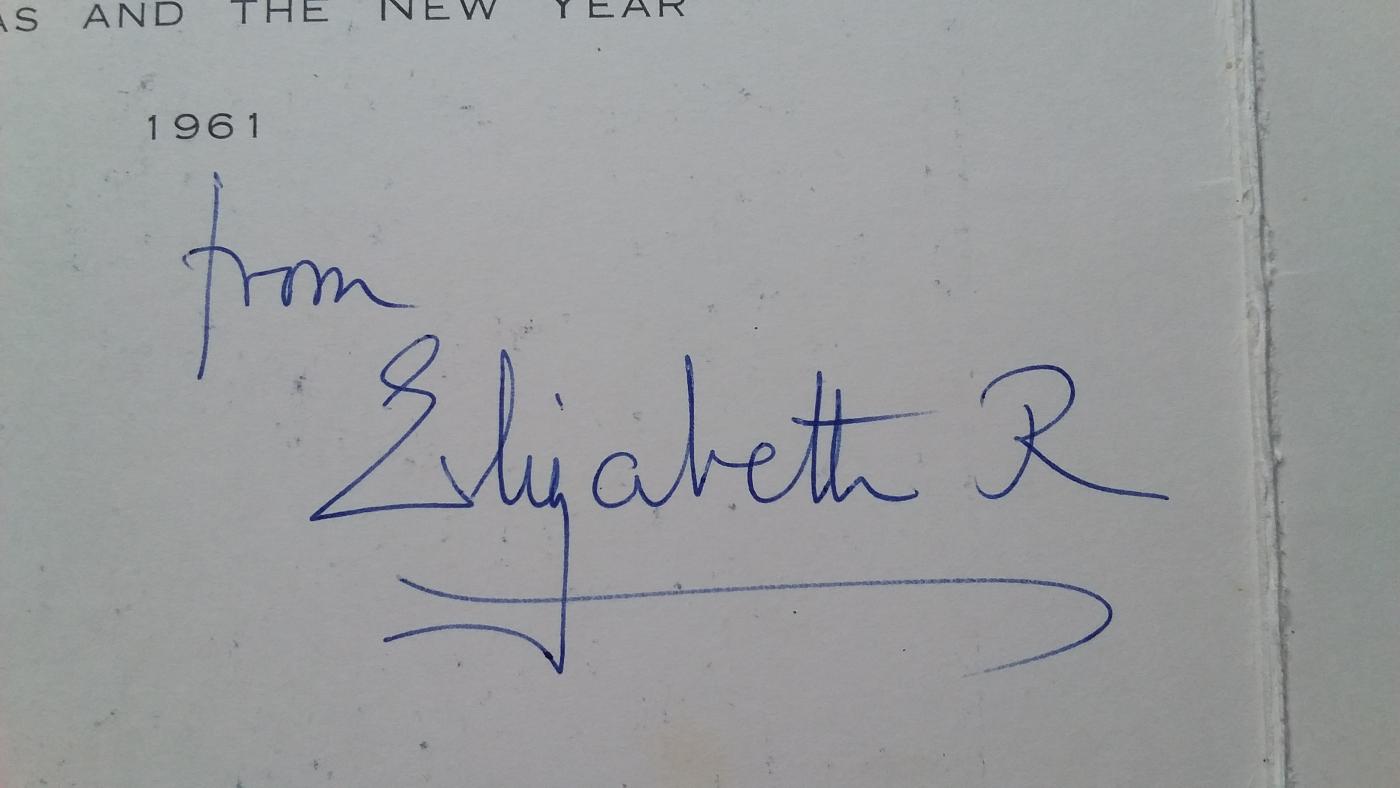 AS AND THE NEW YEAR
1961
from
Elizabeth R